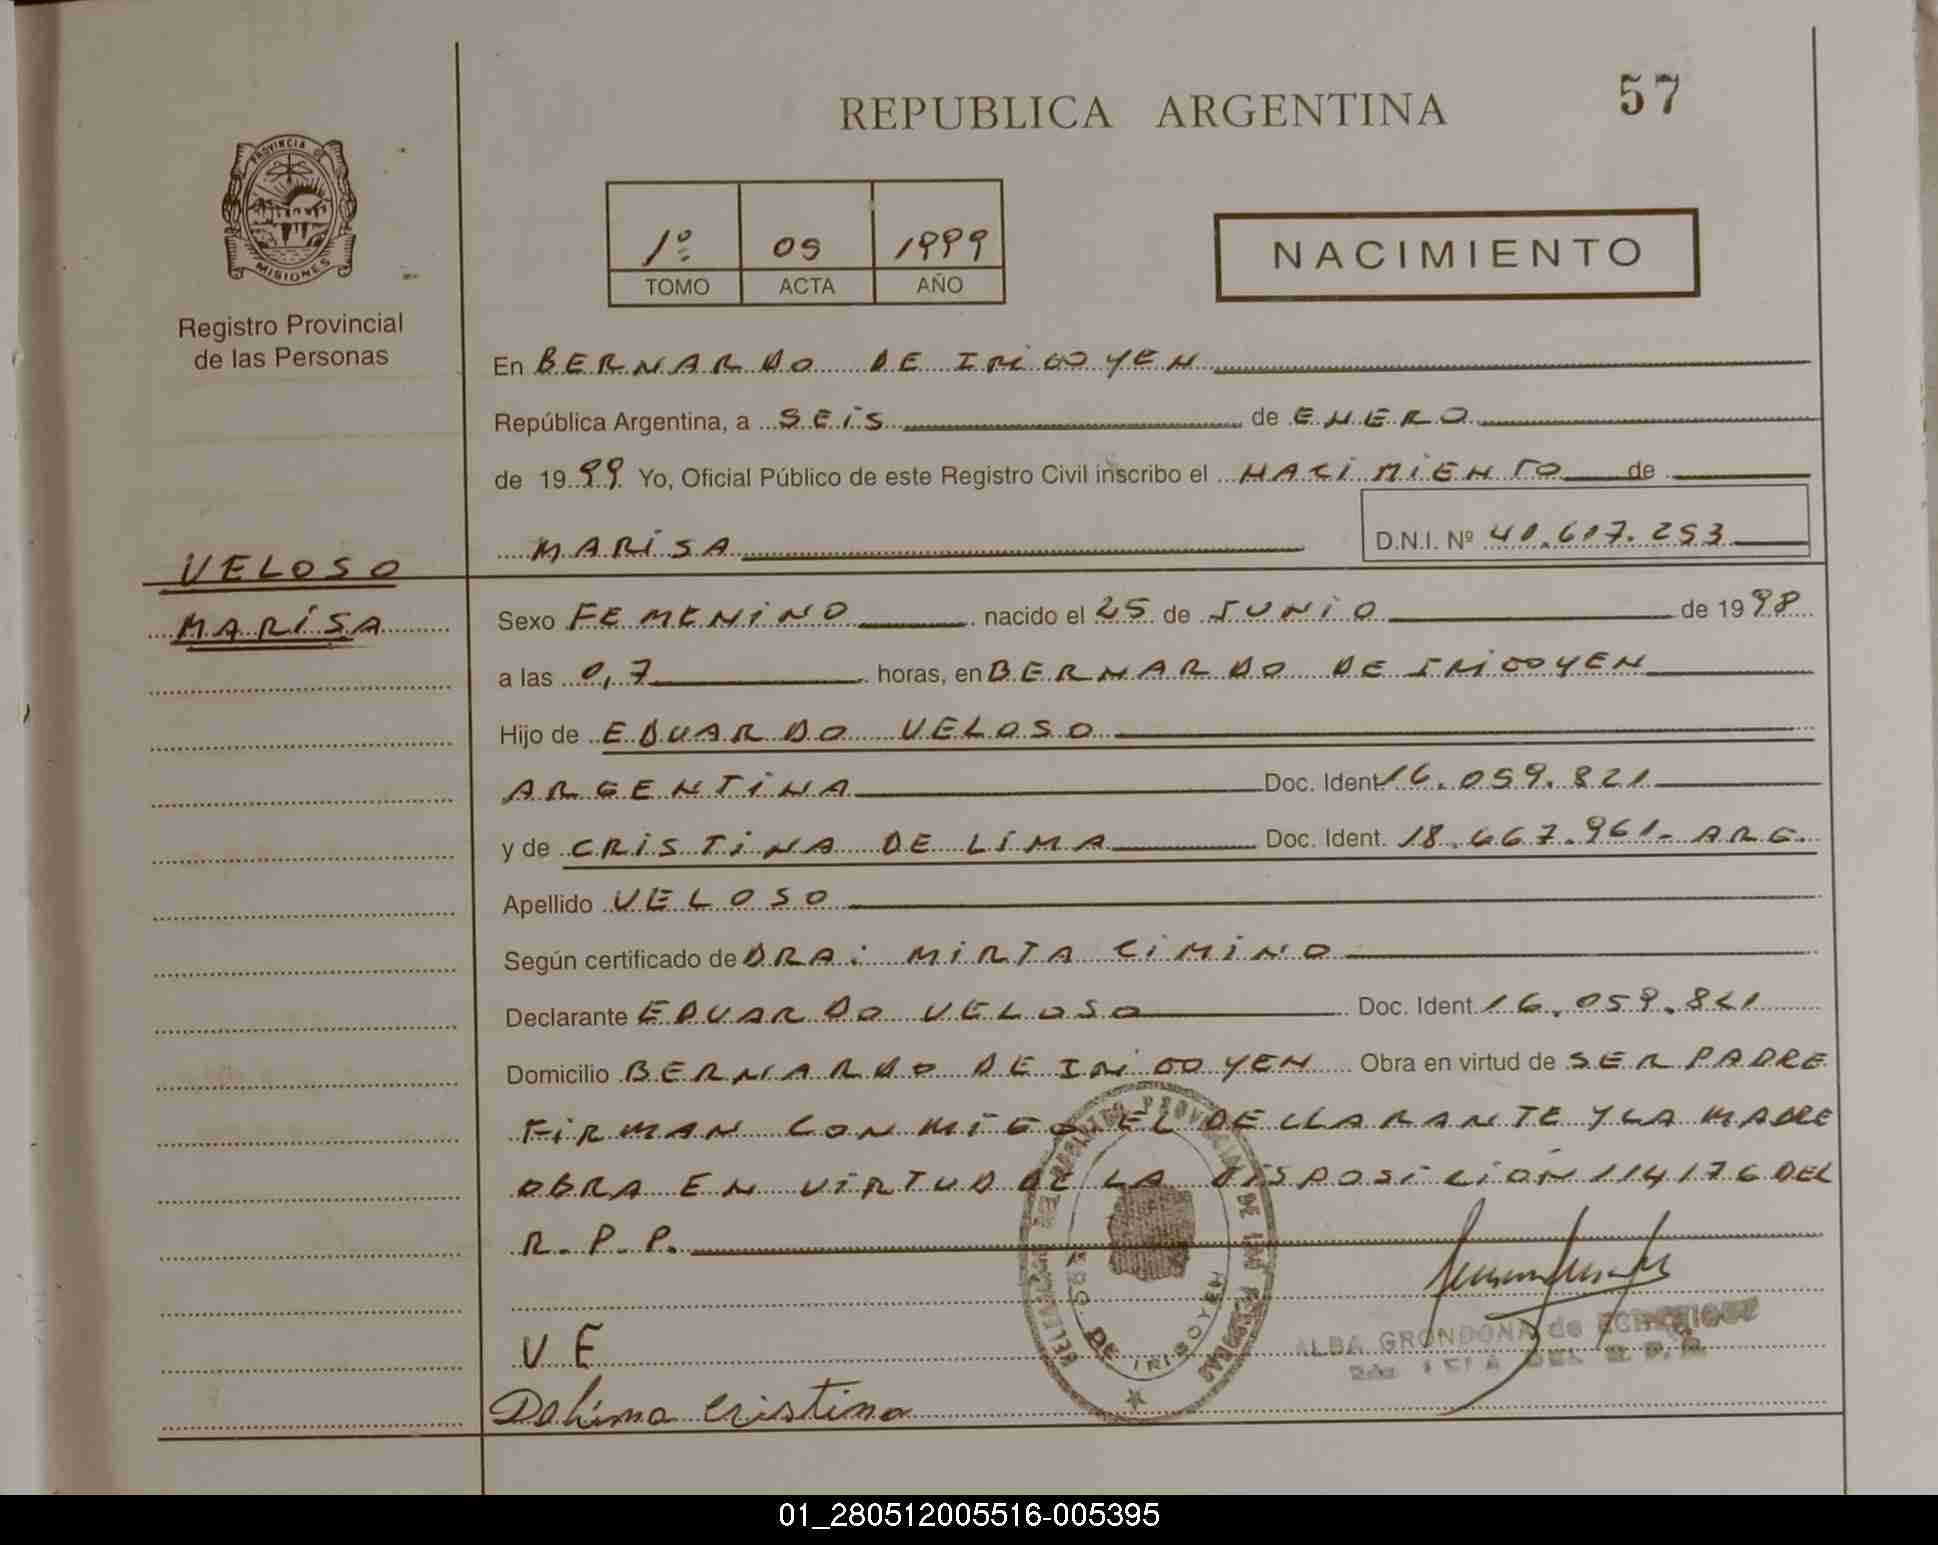 57
REPUBLICA ARGENTINA
PROVINCIA DE
MISIONES
Registro Provincial
de las Personas
1º 05 1999
TOMO ACTA AÑO
NACIMIENTO
En BERNARDO DE IRIGOYEN
República Argentina, a SEIS de ENERO
de 1999 Yo, Oficial Público de este Registro Civil inscribo el NACIMIENTO de
MARISA D.N.I. Nº 41.617.253
VELOSO
MARÍSA
Sexo FEMENINO nacido el 25 de JUNIO de 1998
a las 0,7 horas, en BERNARDO DE IRIGOYEN
Hijo de EDUARDO VELOSO
ARGENTINA Doc. Ident 16.059.821
y de CRISTINA DE LIMA Doc. Ident. 18.667.961- ARG.
Apellido VELOSO
Según certificado de DRA: MIRTA CIMINO
Declarante EDUARDO VELOSO Doc. Ident. 16.059.821
Domicilio BERNARDO DE IRIGOYEN Obra en virtud de SER PADRE
FIRMAN CONMIGO EL DECLARANTE Y LA MADRE
OBRA EN VIRTUD DE LA DISPOSICIÓN 114176 DEL
R.P.P.
DE IRIGOYEN
V E
ALBA GRONDONA de
Delima Cristina
01_280512005516-005395